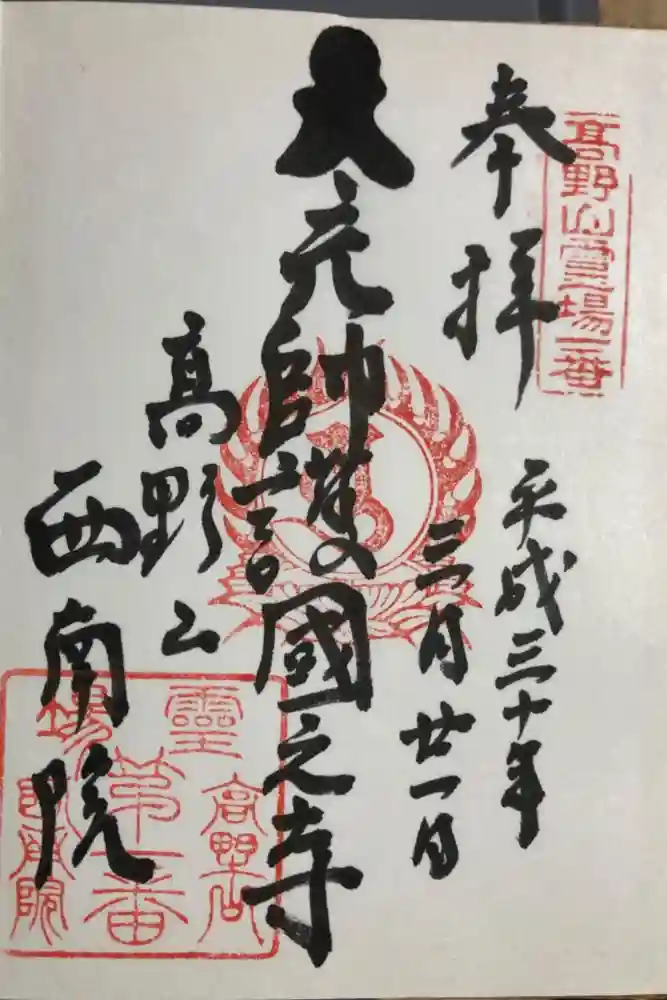 高野山霊場一番
奉拝
平成三十年
三月廿一日
大元帥護國之寺
髙野山
西南院
高野山
靈場
第一番
西南院